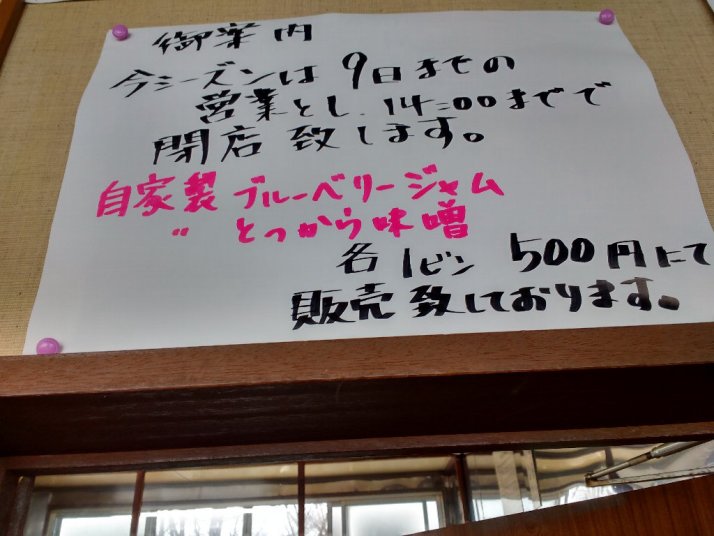 御案内
今シーズンは9日までの
営業とし、14:00までで
閉店致します。
自家製ブルーベリージャム
〃 とっから味噌
各1ビン 500円にて
販売致しております。